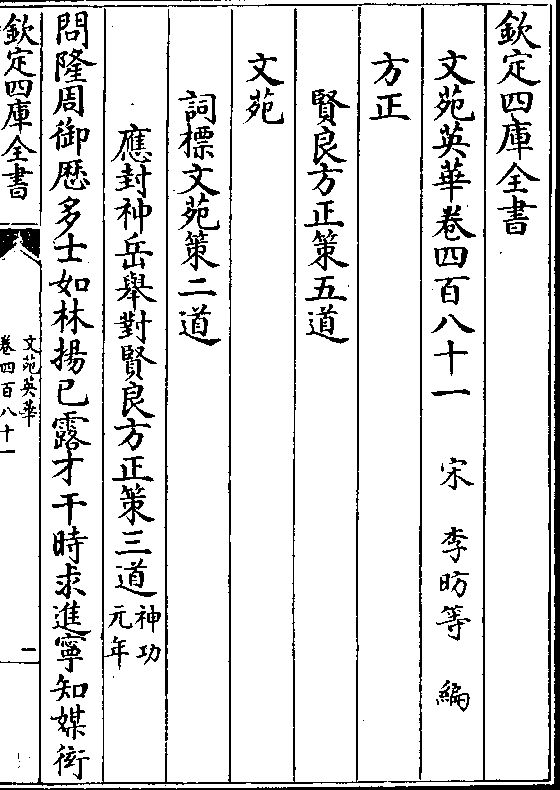 欽定四庫全書
文苑英華卷四百八十一　宋　李昉等　編
方正
賢良方正策五道
文苑
詞標文苑策二道
應封神岳舉對賢良方正策三道神功元年
問隆周御歴多士如林揚已露才干時求進寧知媒衒
欽定四庫全書
文苑英華
卷四百八十一
一